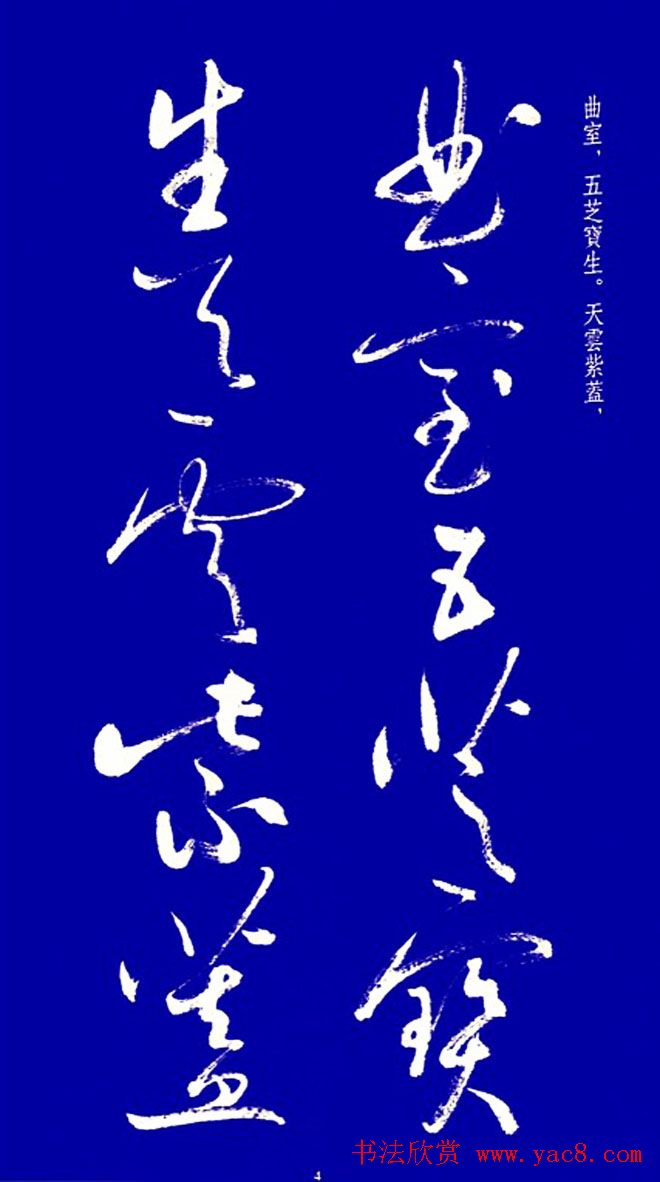 曲室、五芝寶生。天雲紫蓋、
曲室五芝寶
生天雲紫蓋
书法欣赏 www.yac8.com
4